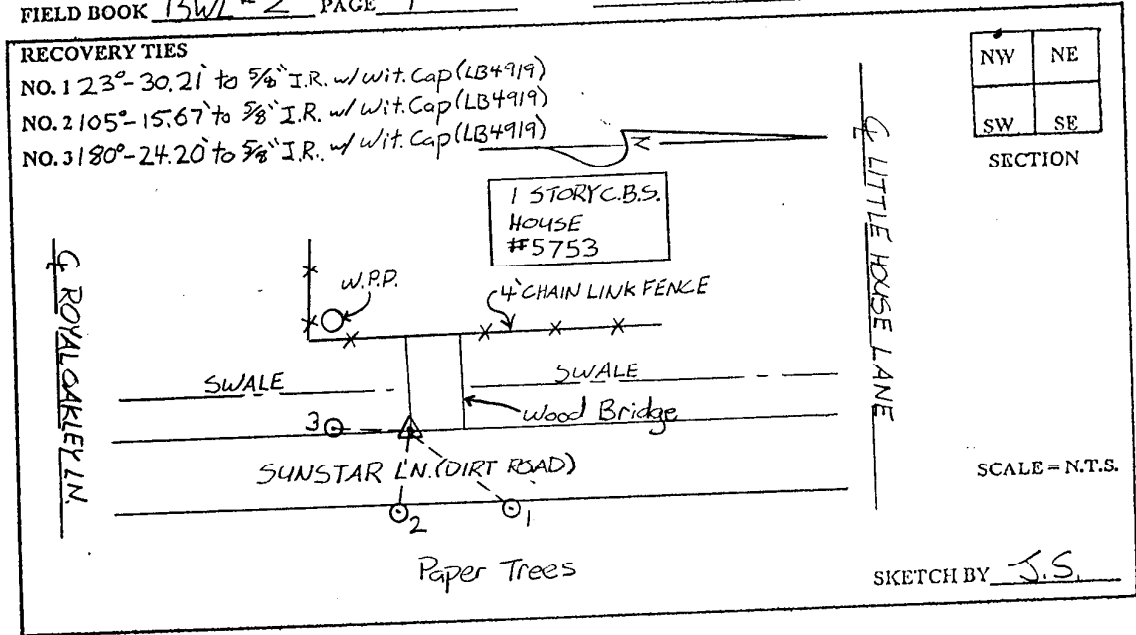 FIELD BOOK BWL #2 PAGE
RECOVERY TIES
NO. 1 23°-30.21' to 5/8" I.R. w/ Wit. Cap (LB4919)
NO. 2 105°-15.67' to 5/8" I.R. w/ Wit. Cap (LB4919)
NO. 3 180°-24.20' to 5/8" I.R. w/ Wit. Cap (LB4919)
NW NE
SW SE
SECTION
N
1 STORY C.B.S.
HOUSE
#5753
℄ LITTLE HOUSE LANE
℄ ROYAL OAKLEY LN.
W.P.P.
4' CHAIN LINK FENCE
SWALE
SWALE
Wood Bridge
3
SUNSTAR LN. (DIRT ROAD)
SCALE = N.T.S.
2
1
Paper Trees
SKETCH BY J.S.